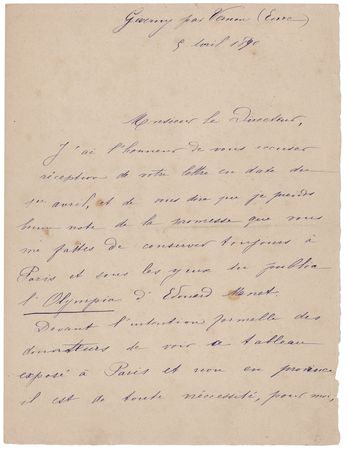 Giverny par Vernon (Eure)
5 avril 1890
Monsieur le Directeur,
J'ai l'honneur de vous accuser
réception de votre lettre en date du
1er avril, et de vous dire que je prends
bonne note de la promesse que vous
me faites de conserver toujours à
Paris et sous les yeux du public
l'Olympia d'Edouard Manet.
Devant l'intention formelle des
donateurs de voir ce tableau
exposé à Paris et non en province
il est de toute nécessité, pour moi,